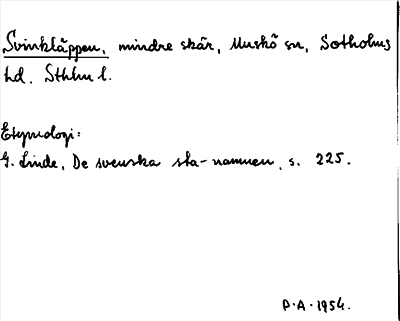 Svinkläppen, mindre skär, Muskö sn, Sotholms
hd. Sthlm l.
Etymologi:
G. Linde, De svenska sta-namnen, s. 225.
P.A. 1954.